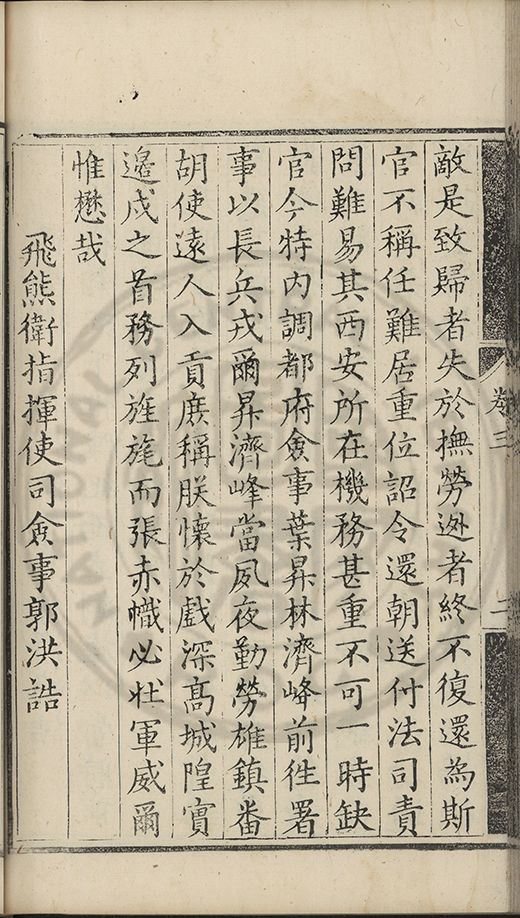 敵是致歸者失於撫勞逊者終不復還為斯
官不稱任難居重位詔令還朝送付法司責
問難易其西安所在機務甚重不可一時缺
官今特內調都府僉事葉昇林濟峰前徃署
事以長兵戎爾昇濟峰當夙夜勤勞雄鎮番
胡使遠人入貢庻稱朕懷於戲深髙城隍實
邉戍之首務列旌旄而張赤幟必壯軍威爾
惟懋哉
飛熊衛指揮使司僉事郭洪誥
卷三
二